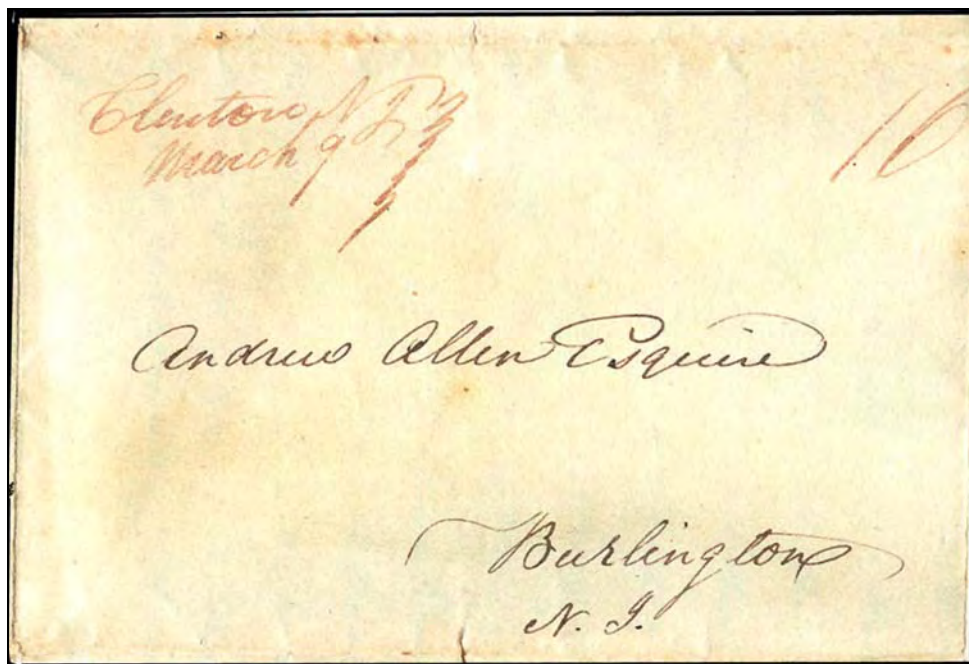 Clinton N J
10
March 9
Andrew Allen Esquire
Burlington
N. J.